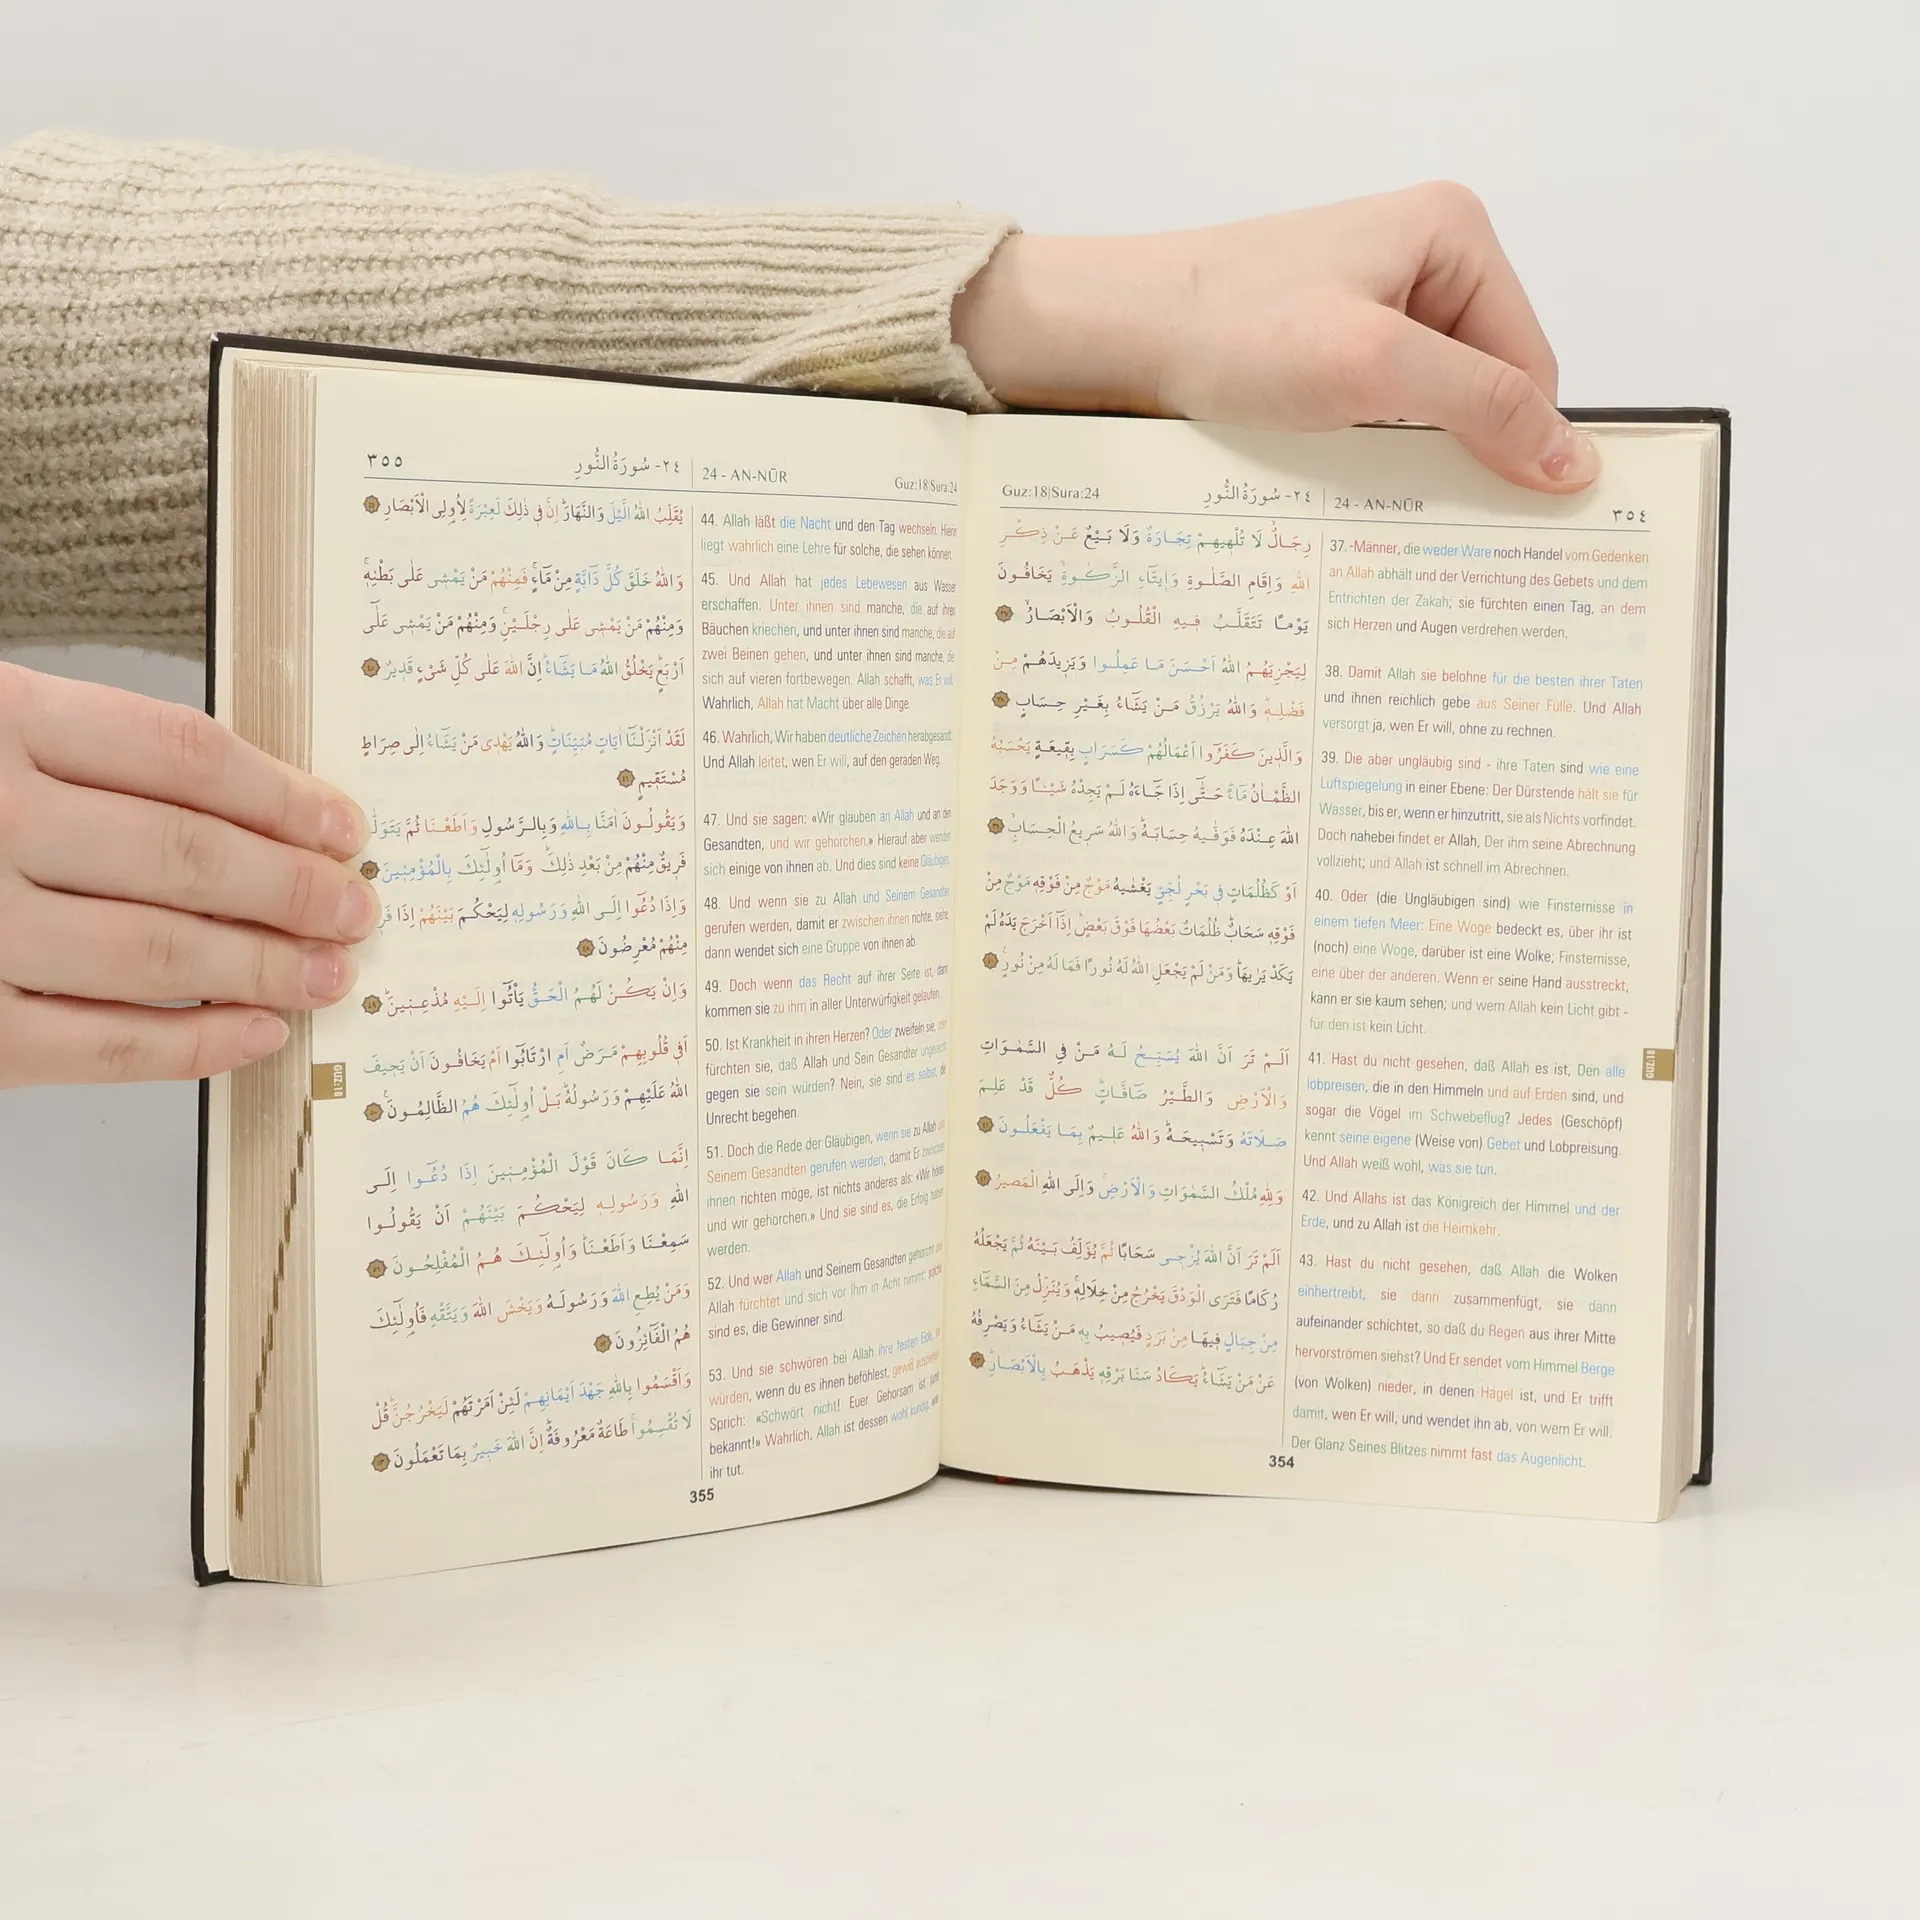 Guz:18|Sura:24
٢٤- سُورَةُ النُّورِ
24 - AN-NŪR
٣٥٤
رِجَالٌ لَا تُلْهِيهِمْ تِجَارَةٌ وَلَا بَيْعٌ عَنْ ذِكْرِ
اللهِ وَاِقَامِ الصَّلٰوةِ وَاِيتَاءِ الزَّكٰوةِ يَخَافُونَ
يَوْمًا تَتَقَلَّبُ فِيهِ الْقُلُوبُ وَالْاَبْصَارُ ٣٧
لِيَجْزِيَهُمُ اللهُ اَحْسَنَ مَا عَمِلُوا وَيَزِيدَهُمْ مِنْ
فَضْلِهِ وَاللهُ يَرْزُقُ مَنْ يَشَاءُ بِغَيْرِ حِسَابٍ ٣٨
وَالَّذِينَ كَفَرُوا اَعْمَالُهُمْ كَسَرَابٍ بِقِيعَةٍ يَحْسَبُهُ
الظَّمْاٰنُ مَاءً حَتّٰى اِذَا جَاءَهُ لَمْ يَجِدْهُ شَيْئًا وَوَجَدَ
اللهَ عِنْدَهُ فَوَفّٰيهُ حِسَابَهُ وَاللهُ سَرِيعُ الْحِسَابِ ٣٩
اَوْ كَظُلُمَاتٍ فِي بَحْرٍ لُجِّيٍّ يَغْشٰيهُ مَوْجٌ مِنْ فَوْقِهِ مَوْجٌ مِنْ
فَوْقِهِ سَحَابٌ ظُلُمَاتٌ بَعْضُهَا فَوْقَ بَعْضٍ اِذَا اَخْرَجَ يَدَهُ لَمْ
يَكَدْ يَرٰيهَا وَمَنْ لَمْ يَجْعَلِ اللهُ لَهُ نُورًا فَمَا لَهُ مِنْ نُورٍ ٤٠
اَلَمْ تَرَ اَنَّ اللهَ يُسَبِّحُ لَهُ مَنْ فِي السَّمٰوَاتِ
وَالْاَرْضِ وَالطَّيْرُ صَافَّاتٍ كُلٌّ قَدْ عَلِمَ
صَلَاتَهُ وَتَسْبِيحَهُ وَاللهُ عَلِيمٌ بِمَا يَفْعَلُونَ ٤١
وَلِلهِ مُلْكُ السَّمٰوَاتِ وَالْاَرْضِ وَاِلَى اللهِ الْمَصِيرُ ٤٢
اَلَمْ تَرَ اَنَّ اللهَ يُزْجِي سَحَابًا ثُمَّ يُؤَلِّفُ بَيْنَهُ ثُمَّ يَجْعَلُهُ
رُكَامًا فَتَرَى الْوَدْقَ يَخْرُجُ مِنْ خِلَالِهِ وَيُنَزِّلُ مِنَ السَّمَاءِ
مِنْ جِبَالٍ فِيهَا مِنْ بَرَدٍ فَيُصِيبُ بِهِ مَنْ يَشَاءُ وَيَصْرِفُهُ
عَنْ مَنْ يَشَاءُ يَكَادُ سَنَا بَرْقِهِ يَذْهَبُ بِالْاَبْصَارِ ٤٣
37. -Männer, die weder Ware noch Handel vom Gedenken
an Allah abhält und der Verrichtung des Gebets und dem
Entrichten der Zakah; sie fürchten einen Tag, an dem
sich Herzen und Augen verdrehen werden.
38. Damit Allah sie belohne für die besten ihrer Taten
und ihnen reichlich gebe aus Seiner Fülle. Und Allah
versorgt ja, wen Er will, ohne zu rechnen.
39. Die aber ungläubig sind - ihre Taten sind wie eine
Luftspiegelung in einer Ebene: Der Dürstende hält sie für
Wasser, bis er, wenn er hinzutritt, sie als Nichts vorfindet.
Doch nahebei findet er Allah, Der ihm seine Abrechnung
vollzieht; und Allah ist schnell im Abrechnen.
40. Oder (die Ungläubigen sind) wie Finsternisse in
einem tiefen Meer: Eine Woge bedeckt es, über ihr ist
(noch) eine Woge, darüber ist eine Wolke; Finsternisse,
eine über der anderen. Wenn er seine Hand ausstreckt,
kann er sie kaum sehen; und wem Allah kein Licht gibt -
für den ist kein Licht.
41. Hast du nicht gesehen, daß Allah es ist, Den alle
lobpreisen, die in den Himmeln und auf Erden sind, und
sogar die Vögel im Schwebeflug? Jedes (Geschöpf)
kennt seine eigene (Weise von) Gebet und Lobpreisung.
Und Allah weiß wohl, was sie tun.
42. Und Allahs ist das Königreich der Himmel und der
Erde, und zu Allah ist die Heimkehr.
43. Hast du nicht gesehen, daß Allah die Wolken
einhertreibt, sie dann zusammenfügt, sie dann
aufeinander schichtet, so daß du Regen aus ihrer Mitte
hervorströmen siehst? Und Er sendet vom Himmel Berge
(von Wolken) nieder, in denen Hagel ist, und Er trifft
damit, wen Er will, und wendet ihn ab, von wem Er will.
Der Glanz Seines Blitzes nimmt fast das Augenlicht.
GUZ:18
354
٣٥٥
٢٤- سُورَةُ النُّورِ
24 - AN-NŪR
Guz:18|Sura:24
يُقَلِّبُ اللهُ الَّيْلَ وَالنَّهَارَ اِنَّ فِي ذٰلِكَ لَعِبْرَةً لِاُولِي الْاَبْصَارِ ٤٤
وَاللهُ خَلَقَ كُلَّ دَابَّةٍ مِنْ مَاءٍ فَمِنْهُمْ مَنْ يَمْشِي عَلٰى بَطْنِهِ
وَمِنْهُمْ مَنْ يَمْشِي عَلٰى رِجْلَيْنِ وَمِنْهُمْ مَنْ يَمْشِي عَلٰى
اَرْبَعٍ يَخْلُقُ اللهُ مَا يَشَاءُ اِنَّ اللهَ عَلٰى كُلِّ شَيْءٍ قَدِيرٌ ٤٥
لَقَدْ اَنْزَلْنَا اٰيَاتٍ مُبَيِّنَاتٍ وَاللهُ يَهْدِي مَنْ يَشَاءُ اِلٰى صِرَاطٍ
مُسْتَقِيمٍ ٤٦
وَيَقُولُونَ اٰمَنَّا بِاللهِ وَبِالرَّسُولِ وَاَطَعْنَا ثُمَّ يَتَوَلّٰى
فَرِيقٌ مِنْهُمْ مِنْ بَعْدِ ذٰلِكَ وَمَا اُولٰئِكَ بِالْمُؤْمِنِينَ ٤٧
وَاِذَا دُعُوا اِلَى اللهِ وَرَسُولِهِ لِيَحْكُمَ بَيْنَهُمْ اِذَا
مِنْهُمْ مُعْرِضُونَ ٤٨
وَاِنْ يَكُنْ لَهُمُ الْحَقُّ يَأْتُوا اِلَيْهِ مُذْعِنِينَ ٤٩
اَفِي قُلُوبِهِمْ مَرَضٌ اَمِ ارْتَابُوا اَمْ يَخَافُونَ اَنْ يَحِيفَ
اللهُ عَلَيْهِمْ وَرَسُولُهُ بَلْ اُولٰئِكَ هُمُ الظَّالِمُونَ ٥٠
اِنَّمَا كَانَ قَوْلَ الْمُؤْمِنِينَ اِذَا دُعُوا اِلَى
اللهِ وَرَسُولِهِ لِيَحْكُمَ بَيْنَهُمْ اَنْ يَقُولُوا
سَمِعْنَا وَاَطَعْنَا وَاُولٰئِكَ هُمُ الْمُفْلِحُونَ ٥١
وَمَنْ يُطِعِ اللهَ وَرَسُولَهُ وَيَخْشَ اللهَ وَيَتَّقْهِ فَاُولٰئِكَ
هُمُ الْفَائِزُونَ ٥٢
وَاَقْسَمُوا بِاللهِ جَهْدَ اَيْمَانِهِمْ لَئِنْ اَمَرْتَهُمْ لَيَخْرُجُنَّ قُلْ
لَا تُقْسِمُوا طَاعَةٌ مَعْرُوفَةٌ اِنَّ اللهَ خَبِيرٌ بِمَا تَعْمَلُونَ ٥٣
44. Allah läßt die Nacht und den Tag wechseln. Hierin
liegt wahrlich eine Lehre für solche, die sehen können.
45. Und Allah hat jedes Lebewesen aus Wasser
erschaffen. Unter ihnen sind manche, die auf ihren
Bäuchen kriechen, und unter ihnen sind manche, die auf
zwei Beinen gehen, und unter ihnen sind manche, die
sich auf vieren fortbewegen. Allah schafft, was Er will.
Wahrlich, Allah hat Macht über alle Dinge.
46. Wahrlich, Wir haben deutliche Zeichen herabgesandt.
Und Allah leitet, wen Er will, auf den geraden Weg.
47. Und sie sagen: «Wir glauben an Allah und an den
Gesandten, und wir gehorchen.» Hierauf aber wenden
sich einige von ihnen ab. Und dies sind keine Gläubigen.
48. Und wenn sie zu Allah und Seinem Gesandten
gerufen werden, damit er zwischen ihnen richte, siehe,
dann wendet sich eine Gruppe von ihnen ab.
49. Doch wenn das Recht auf ihrer Seite ist, dann
kommen sie zu ihm in aller Unterwürfigkeit gelaufen.
50. Ist Krankheit in ihren Herzen? Oder zweifeln sie, oder
fürchten sie, daß Allah und Sein Gesandter ungerecht
gegen sie sein würden? Nein, sie sind es selbst, die
Unrecht begehen.
51. Doch die Rede der Gläubigen, wenn sie zu Allah und
Seinem Gesandten gerufen werden, damit Er zwischen
ihnen richten möge, ist nichts anderes als: «Wir hören
und wir gehorchen.» Und sie sind es, die Erfolg haben
werden.
52. Und wer Allah und Seinem Gesandten gehorcht und
Allah fürchtet und sich vor Ihm in Acht nimmt: solche
sind es, die Gewinner sind.
53. Und sie schwören bei Allah ihre festen Eide,
würden, wenn du es ihnen beföhlest, gewiß ausziehen.
Sprich: «Schwört nicht! Euer Gehorsam ist
bekannt!» Wahrlich, Allah ist dessen wohl kundig, was
ihr tut.
GUZ:18
355